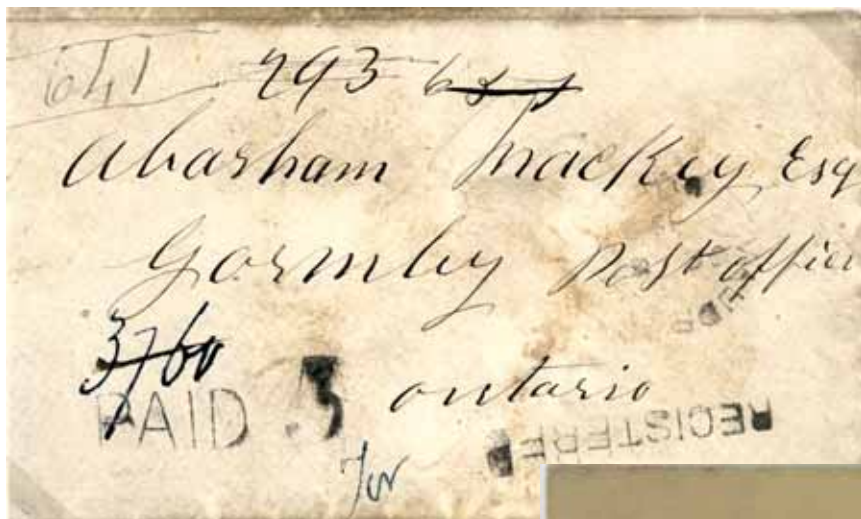 641 293
Abarham Mackey Esq
Gormley Post office
3760
PAID 3 ontario
REGISTERED